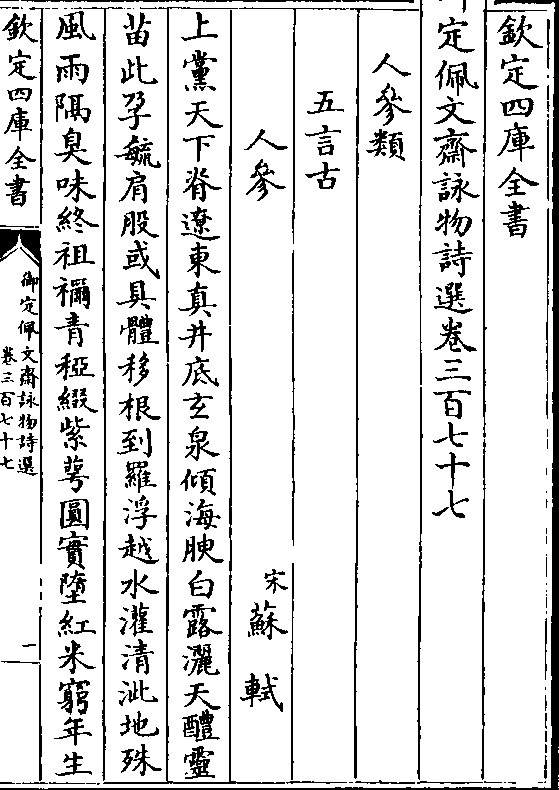 欽定四庫全書
定佩文齋詠物詩選卷三百七十七
人參類
五言古
人參 宋 蘇軾
上黨天下脊遼東真井底玄泉傾海腴白露灑天醴靈
苗此孕毓肩股或具體移根到羅浮越水灌清泚地殊
風雨隔臭味終祖禰青椏綴紫萼圓實墮紅米窮年生
欽定四庫全書
御定佩文齋詠物詩選
卷三百七十七
一